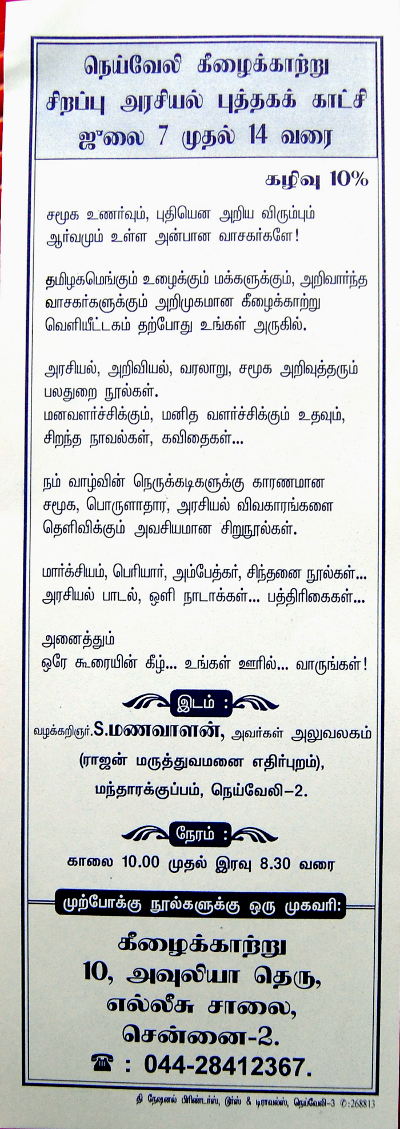 நெய்வேலி கீழைக்காற்று
சிறப்பு அரசியல் புத்தகக் காட்சி
ஜுலை 7 முதல் 14 வரை
கழிவு 10%
சமூக உணர்வும், புதியென அறிய விரும்பும்
ஆர்வமும் உள்ள அன்பான வாசகர்களே!
தமிழகமெங்கும் உழைக்கும் மக்களுக்கும், அறிவார்ந்த
வாசகர்களுக்கும் அறிமுகமான கீழைக்காற்று
வெளியீட்டகம் தற்போது உங்கள் அருகில்.
அரசியல், அறிவியல், வரலாறு, சமூக அறிவுத்தரும்
பலதுறை நூல்கள்.
மனவளர்ச்சிக்கும், மனித வளர்ச்சிக்கும் உதவும்,
சிறந்த நாவல்கள், கவிதைகள்...
நம் வாழ்வின் நெருக்கடிகளுக்கு காரணமான
சமூக, பொருளாதார, அரசியல் விவகாரங்களை
தெளிவிக்கும் அவசியமான சிறுநூல்கள்.
மார்க்சியம், பெரியார், அம்பேத்கர், சிந்தனை நூல்கள்...
அரசியல் பாடல், ஒளி நாடாக்கள்... பத்திரிகைகள்...
அனைத்தும்
ஒரே கூரையின் கீழ்... உங்கள் ஊரில்... வாருங்கள்!
இடம் :
வழக்கறிஞர்.S.மணவாளன், அவர்கள் அலுவலகம்
(ராஜன் மருத்துவமனை எதிர்புறம்),
மந்தாரக்குப்பம், நெய்வேலி-2.
நேரம் :
காலை 10.00 முதல் இரவு 8.30 வரை
முற்போக்கு நூல்களுக்கு ஒரு முகவரி:
கீழைக்காற்று
10, அவுலியா தெரு,
எல்லீசு சாலை,
சென்னை-2.
☎ : 044-28412367.
தி நேஷனல் பிரிண்டர்ஸ், டூர்ஸ் & டிராவல்ஸ், நெய்வேலி-3 ✆:268813